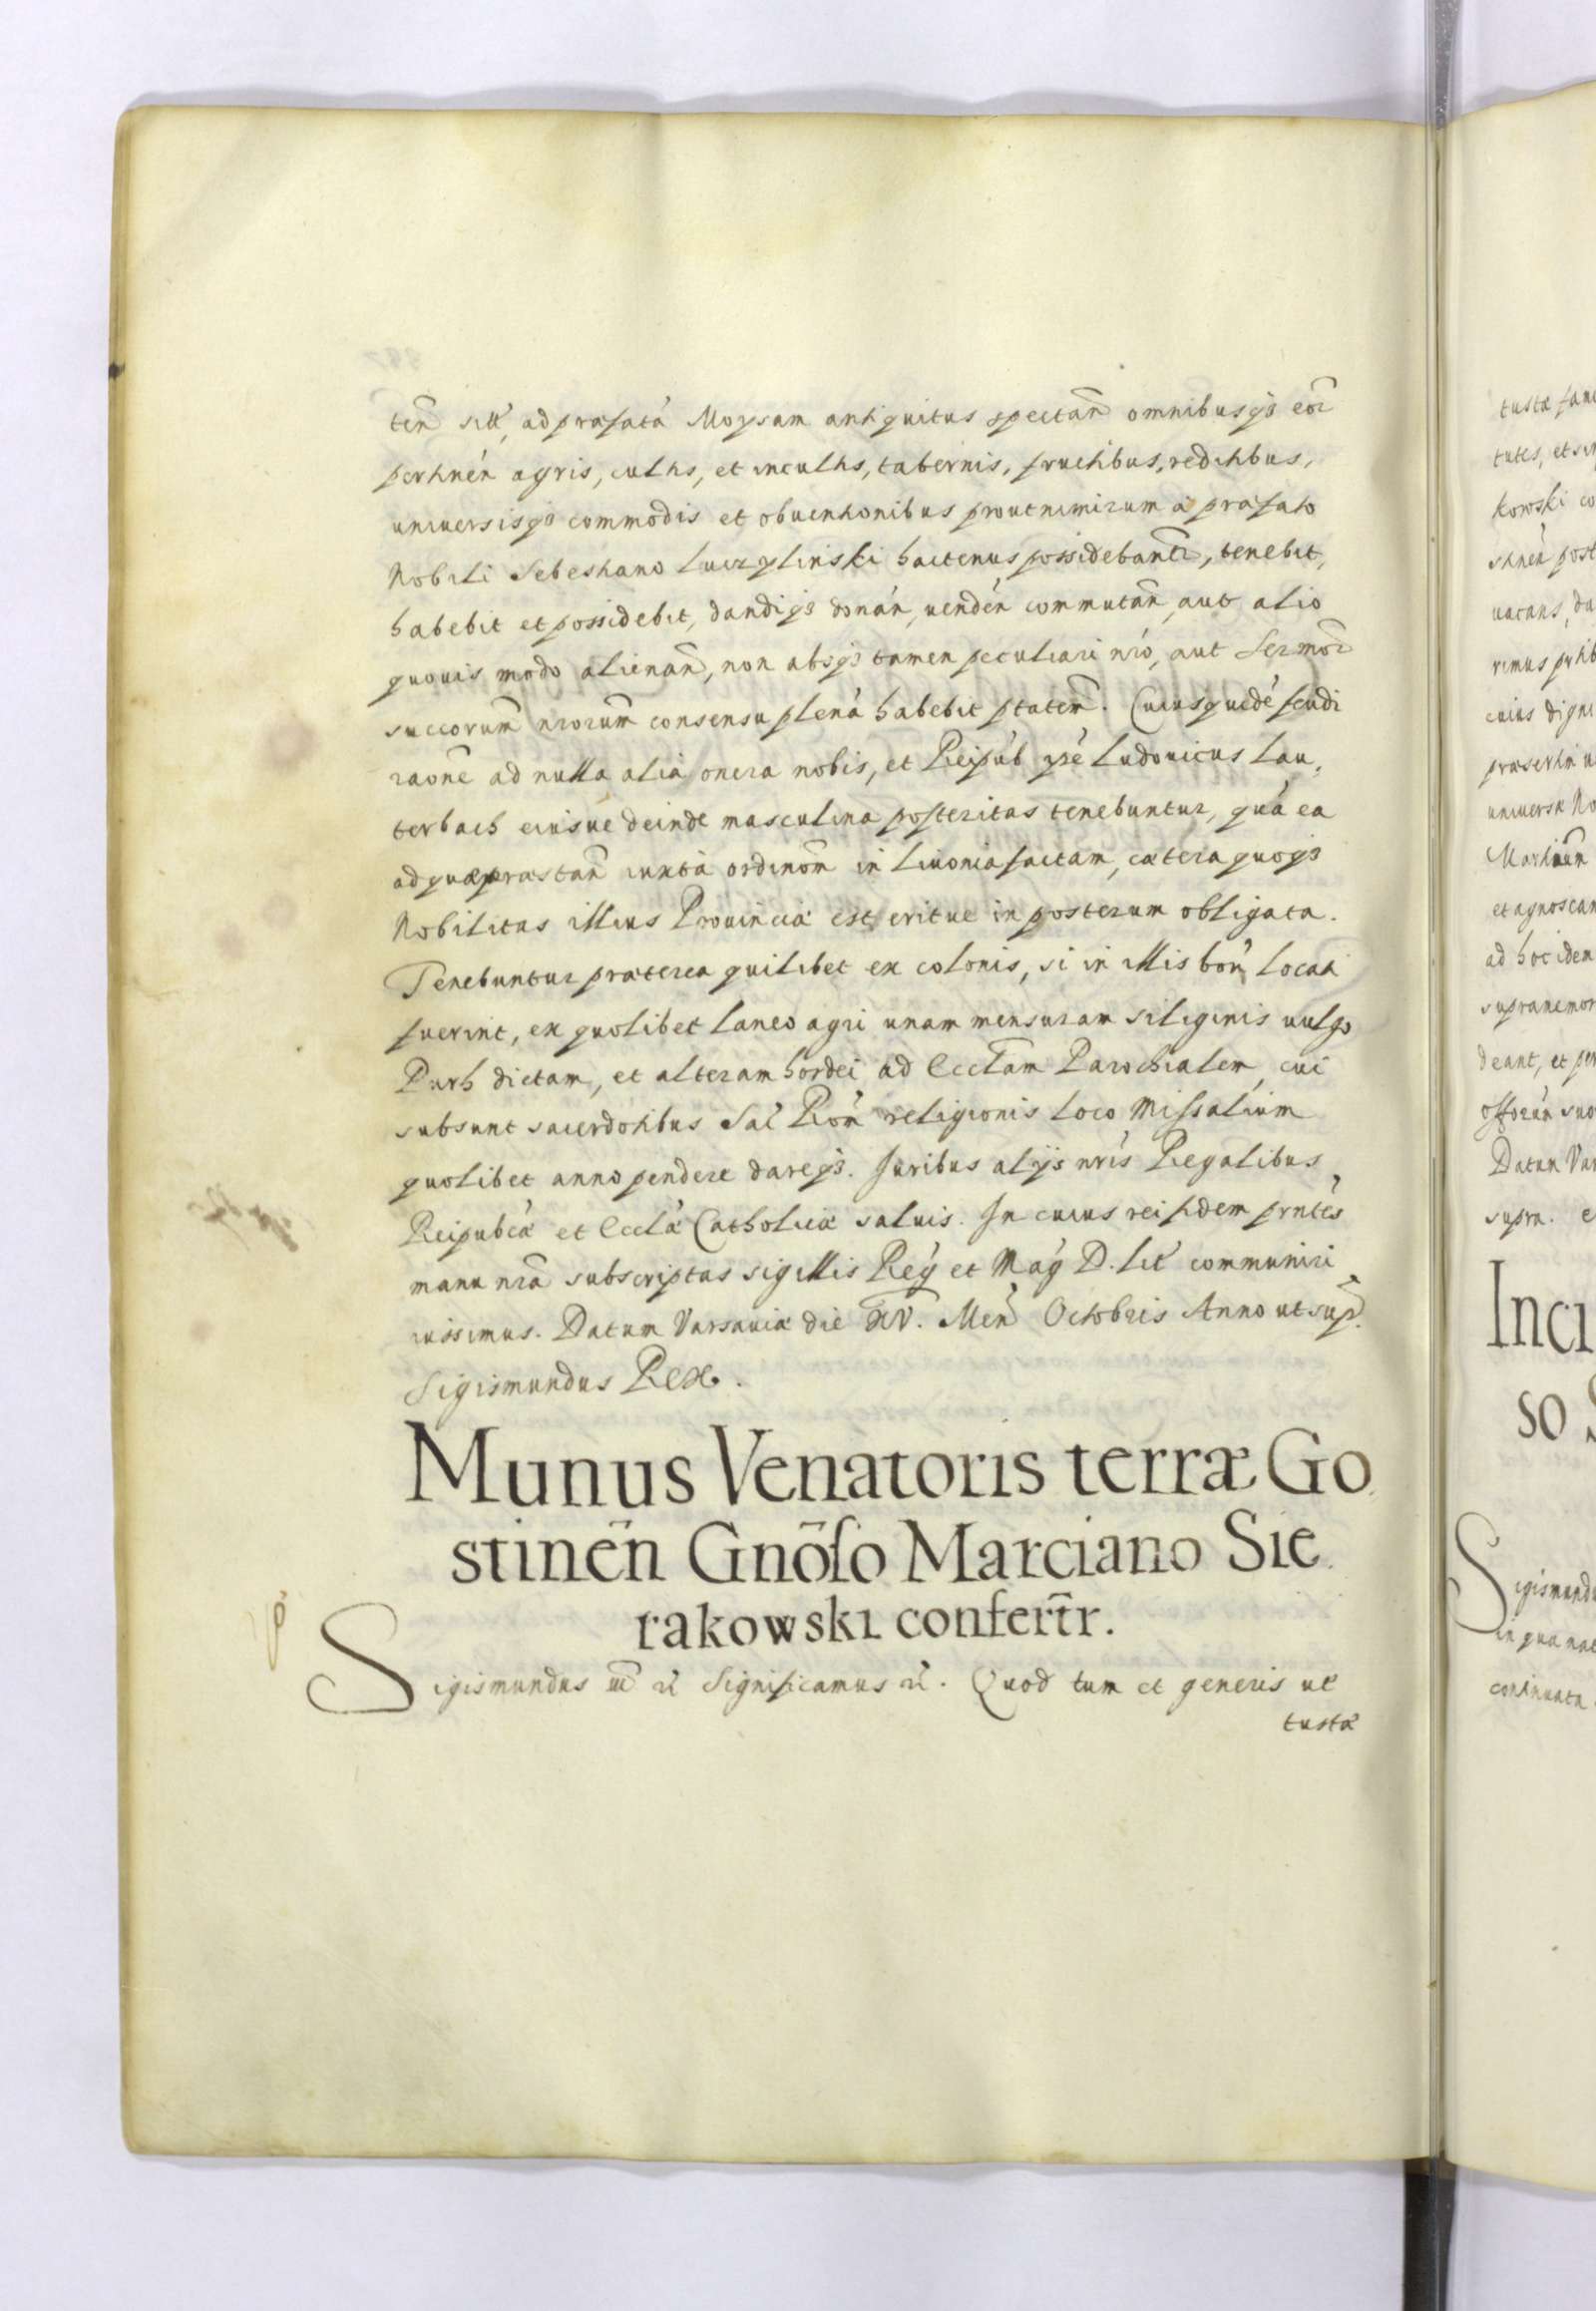 teñ sitt, ad præfatá Moysam antiquitus spectañ omnibusqȝ eoȓ
pertinén agris, cultis, et incultis, tabernis, fructibus, reditibus,
universisqȝ commodis et obuentionibus prout nimirum á præfato
Nobili Sebestiano hactenus possidebantȓ, tenebit,
habebit et possidebit, dandi qȝ donán, uendén commután, aut alio
quouis modo alienañ, non absqȝ tamen peculiari nr̃o, aut Sermoȓ
succorum̃ nr̃orum consensu plená habebit ptatem̃. Cuiusquidé feudi
raõne ad nulla alia onera nobis, et Reipub́ Ludouicus Lau,
terbach eiusue deinde masculina posteritas tenebuntur, quá ea
ad quæ præstañ iuxtá ordinom̃ in Liuonia factam, cætera quoqȝ
Nobilitas illius Prouinciæ est, eritue in posterum obligata.
Tenebuntur præterea quilibet ex colonis, si in illis boń locati
fuerint, ex quolibet laneo agri unam mensuram siliginis uulgo
Purh dictam, et alteram hordei ad Eccl̃am Parochialem, cui
subsunt sacerdotibus Sać Rom̃ religionis loco Missalium
quolibet anno pendere dareqȝ. Juribus alijs nr̃is Regalibus
Reipubcæ et Ecclæ Catholicæ saluis. In cuius rei fidem prntes
manu nr̃a subscriptas sigillis Reǵ et Maǵ D. Lit́ communiri
iussimus. Datum Varsauiæ die XV. Meñ Octobris Anno ut sup̃.
Sigismundus Rex.
Munus Venatoris terræ Go
stinẽn Gnõso Marciano Sie
rakowski confert̃r.
Sigismundus Significamus Quod tum et generis ue
tustæ
tustæ
tutes, et
kowski
post
uacans,
rimus
cuius
uniuersæ
Martianum
et
ad hoc
supra
deant, et
Datum
supra.
Inci
so
in qua